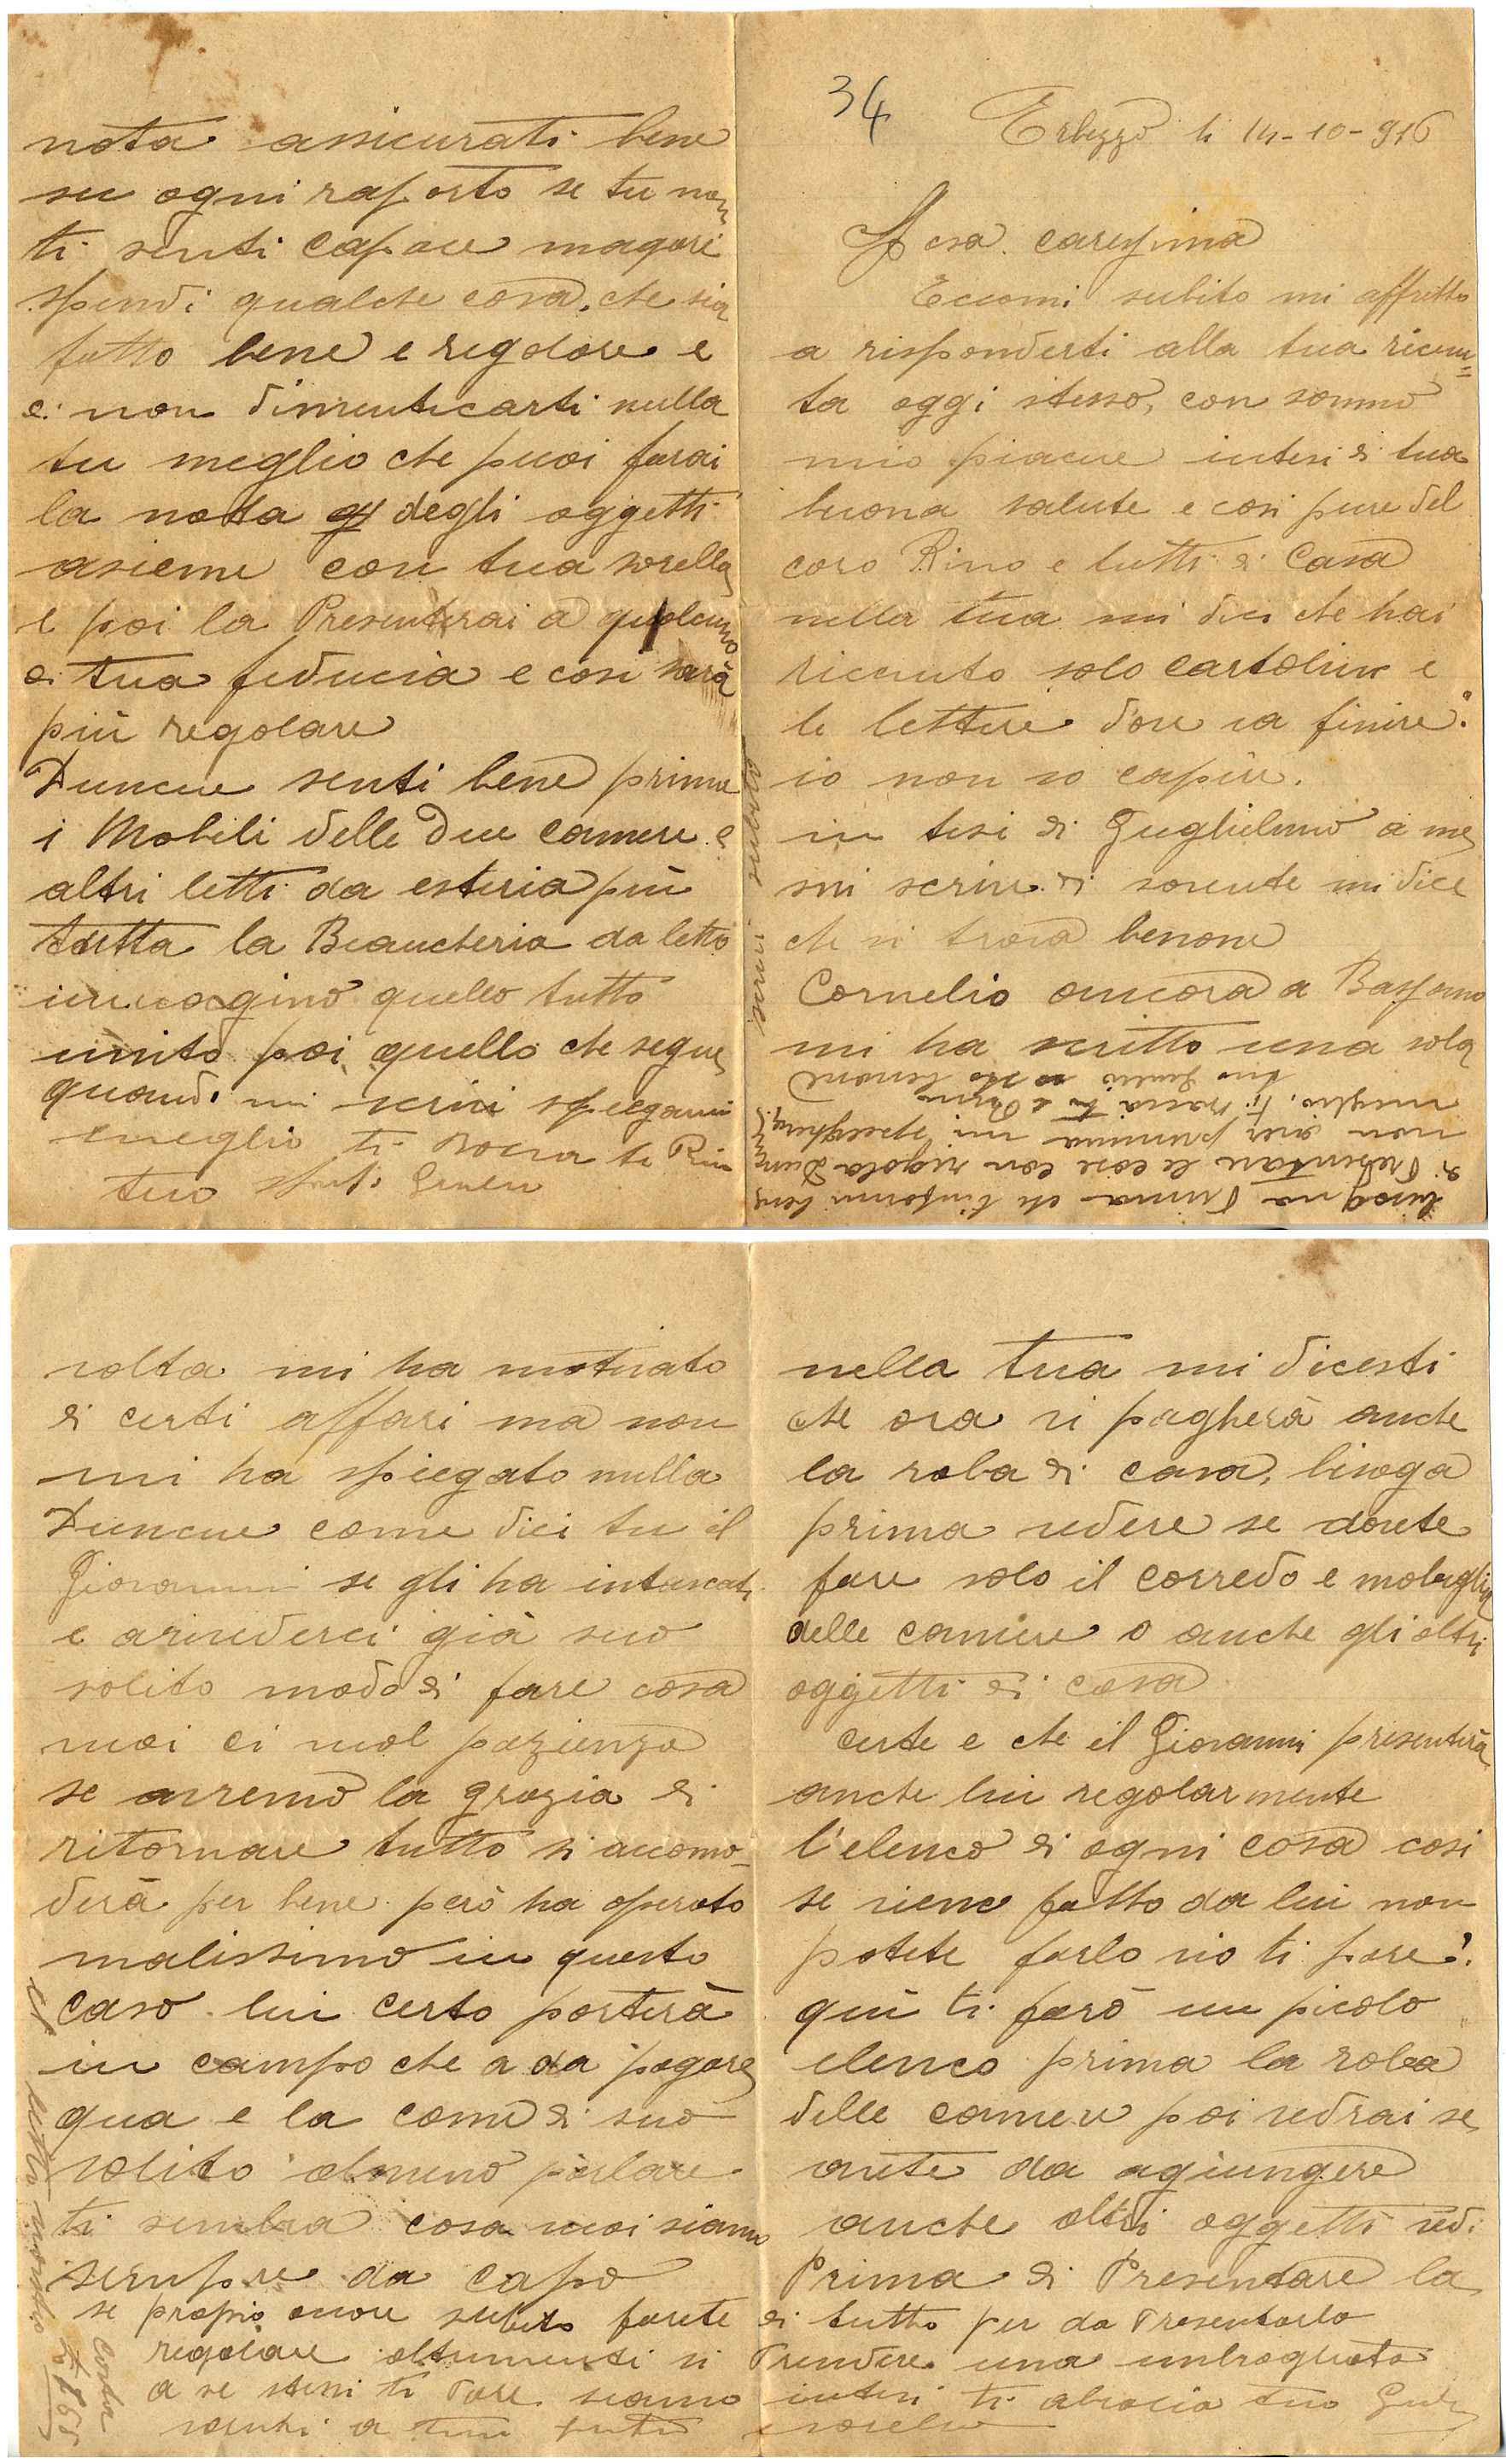 34
Erbezzo li 14-10-916
Rosa carissima
Eccomi subito mi affretto
a risponderti alla tua riceuu=
ta oggi stesso, con sommo
mio piacere intesi di tua
buona salute e cosi pure del
caro Rino e tutti di Casa
nella tua mi dici che hai
riceuuto solo cartoline e
le lettere dove va finire?
io non so capire.
in tesi di Guglielmo a me
mi scrive di sovente mi dice
che si trova benone
Cornelio ancora a Bassano
mi ha scritto una sola
volta mi ha motivato
di certi affari ma non
mi ha spiegato nulla
Duncue come dici tu il
Giovanni se gli ha intascati
e arivederci già suo
solito modo di fare cosa
vuoi ci vuol pazienza
se avremo la grazia di
ritornare tutto si accomo-
derà per bene però ha operato
malissimo in questo
caso lui certo porterà
in campo che a da pagare
qua e la come di suo
solito almeno parlare
ti sembra cosa vuoi siamo
sempre da capo
nella tua mi dicesti
che ora si pagherà anche
la roba di casa, bisoga
prima vedere se dovete
fare solo il corredo e mobiglia
delle camere o anche gli altri
oggetti di casa
certe e che il Giovanni presenterà
anche lui regolarmente
l'elenco di ogni cosa cosi
se viene fatto da lui non
potete farlo voi ti pare?
quì ti farò un picolo
elenco prima la roba
delle camere poi vedrai se
avete da agiungere
anche altri oggetti vedi
Prima di Presentare la
nota assicurati bene
su ogni raporto se tu non
ti senti capace magari
spendi qualche cosa, che sia
fatto bene e regolare e
e non dimenticarti nulla
tu meglio che puoi farai
la nota degli oggetti
asieme con tua sorella
e poi la Presenterai a qualcuno
di tua fiducia e cosi sarà
più regolare
Duncue senti bene prima
i Mobili delle Due camere e
altri letti da esteria più
tutta la Biancheria da letto
immagino quello tutto
unito poi quello che segue
quando mi scrivi spiegami
meglio ti Bacia te Rino
tuo
bisogna Prima che t'informi bene
di Presentare le cose con regola
non sia premura mi spiegherai
meglio, ti bacia tu e Rino
tuo Giulio sto benone
se propio ocore subito farete di tutto per da Presentarlo
regolare altrimenti si Prendere una imbrogliata
a se stessi ti Pare siamo intesi ti abracia tuo